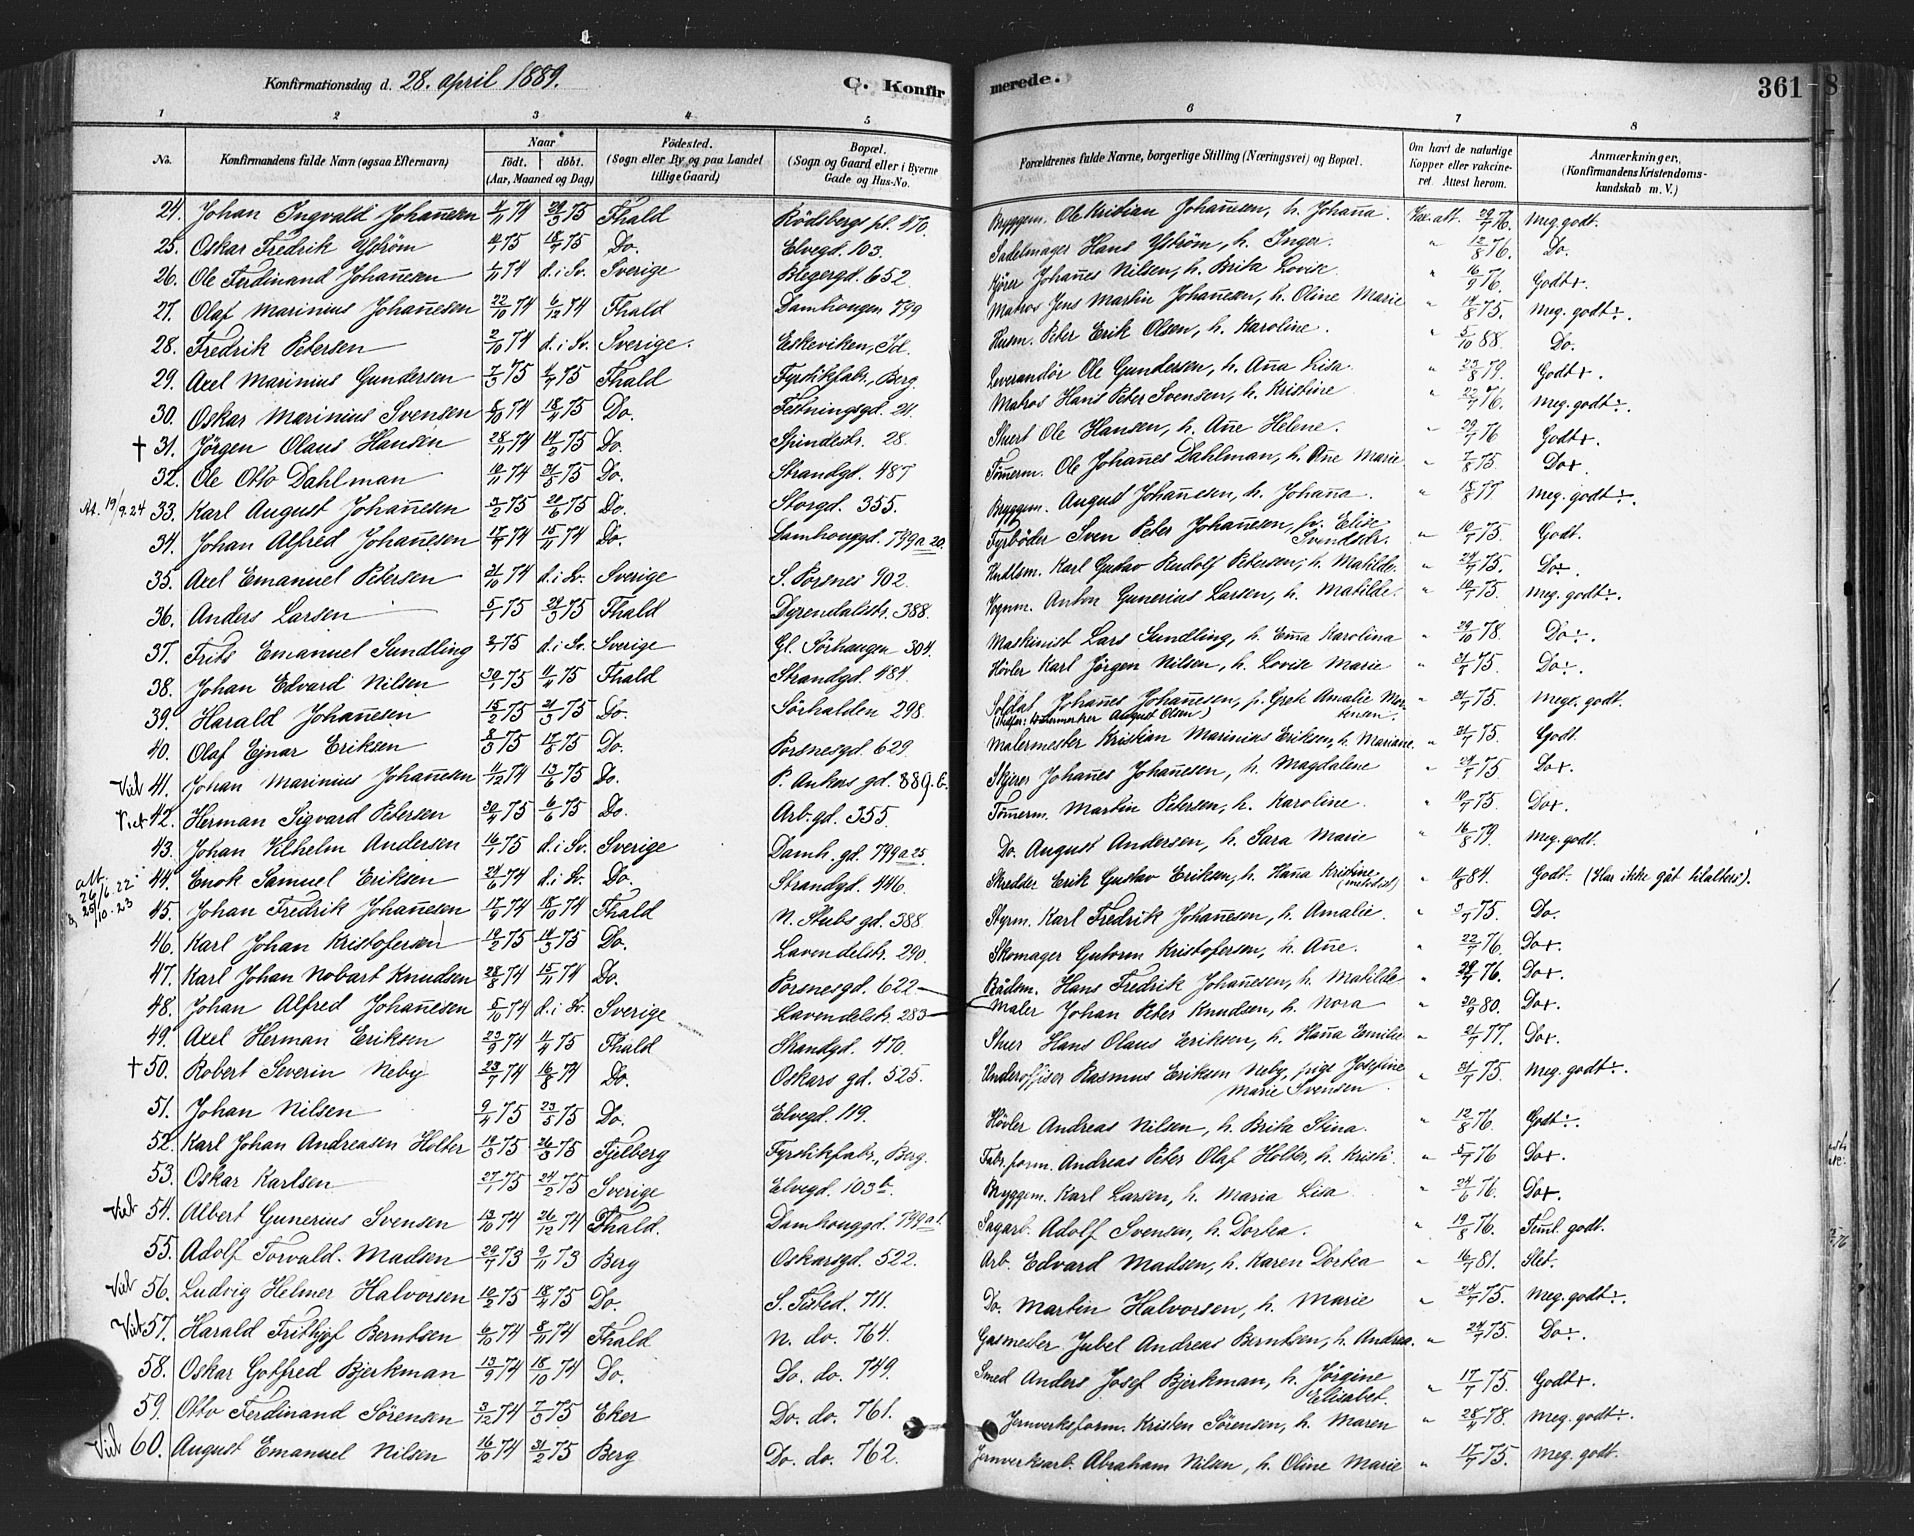 Konfirmationsdag d. 28. april 1889. C. Konfirmerede. 361
1 2 3 4 5 6 7 8
No. Konfirmandens fulde Navn (ogsaa Efternavn) Naar født. døbt. (Aar, Maaned og Dag) Födested. (Sogn eller By og paa Landet tillige Gaard) Bopæl. (Sogn og Gaard eller i Byerne Gade og Hus-No. Forældrenes fulde Navne, borgerlige Stilling (Næringsvei) og Bopæl. Om havt de naturlige Kopper eller vakcineret. Attest herom. Anmærkninger, (Konfirmandens Kristendomskundskab m. V.)
24. Johan Ingvald Johan̄esen 74 29/3 75 Fhald Rödsbergs pl. 470. Bryggem. Ole Kristian Johan̄esen, h. Johan̄a. Vac. att. 29/7 76. Meg. godt.
25. Oskar Fredrik Ystrøm 75 18/7 75 Do. Elvegd. 103. Sadelmager Hans Ystrøm, h. Inger. " 12/8 76. Do.
26. Ole Ferdinand Johan̄esen 74 d. i Sv. Sverige 652. Kjører Johan̄es Nilsen, h. Brita Lovise. " 16/9 76. Godt+.
27. Olaf Marinius Johan̄esen 22/10 74 6/12 74 Fhald Damhougen 799 Matros Jens Martin Johan̄esen, h. Oline Marie " 14/8 75. Meg. godt÷.
28. Fredrik Petersen 2/10 74 d. i Sv. Sverige. Eskeviken, Id. Husm. Peter Erik Olsen, h. Karoline. " 5/10 88. Do.
29. Axel Marinius Gundersen 7/3 75 75 Fhald Fyrstikfabr., Berg. Leverandør Ole Gundersen, h. An̄a Lisa. " 23/8 79. Godt+.
30. Oskar Marinius Svensen 8/10 74 18/4 75 Do. Festningsgd. 24. Matros Hans Peter Svensen, h. Kristine " 22/7 76. Meg. godt÷.
† 31. Jørgen Olaus Hansen 28/11 74 14/2 75 Do. Spindestr. 28. Stuert Ole Hansen, h. An̄e Helene. " 29/7 76 Godt+.
32. Ole Otto Dahlman 74 75 Do. Strandgd. 487 Töm̄erm. Ole Johan̄es Dahlman, h. An̄e Marie " 7/8 75. Do+.
Att. 19/9.24 33. Karl August Johan̄esen 3/2 75 20/6 75 Do. Storgd. 355. Bryggem. August Johan̄esen, h. Johan̄a. " 18/8 77. Meg. godt÷.
34. Johan Alfred Johan̄esen 74 15/11 74 Do. Damhouggd. 799 a 20. Fyrbøder Sven Peter Johan̄esen, Elise Svendstr. " 75. Godt.
35. Axel Emanuel Petersen 21/10 74 d. i Sv. Sverige S. Porsnes 902. Hndlsm. Karl Gustav Rudolf Petersen, h. Matilde. " 24/7 75. Do÷.
36. Anders Larsen 5/1 75 29/3 75 Fhald Dyrendalstr. 388. Vognm. Anton Gunerius Larsen, h. Matilde. " 75. Meg. godt÷.
37. Frits Emanuel Sundling 75 d. i Sv. Sverige Gl. Sörhaugen 304. Maskinist Lars Sundling, h. Em̄a Karolina " 29/10 78. Do÷.
38. Johan Edvard Nilsen 75 75 Fhald Strandgd. 484. Høvler Karl Jörgen Nilsen, h. Lovise Marie " 21/7 75. Do÷.
39. Harald Johan̄esen 15/2 75 21/3 75 Do. Sörhalden 298. Soldat Johan̄es Johan̄esen, p. Grete Amalie Mortensen. (Stedfar: August Olsen) " 75. Meget godt.
40. Olaf Ejnar Eriksen 8/3 75 75 Do. Porsnesgd. 629. Malermester Kristian Marinius Eriksen, h. Mariane. " 75. Godt.
Vid 41. Johan Marinius Johan̄esen 74 13/6 75 Do. P. Ankers gd. 889. b. Skjører Johan̄es Johan̄esen, h. Magdalene " 75 Do+.
Viet 42. Herman Sigvard Petersen 30/4 75 6/6 75 Do. Arb. gd. 355. Töm̄erm. Martin Petersen, h. Karoline. " 75. Do+.
43. Johan Vilhelm Andersen 16/1 75 d. i Sv. Sverige Damh. gd. 799 a 25. Do. August Andersen, h. Sara Marie " 16/8 79. Meg. godt.
att. 26/6.22. & 25/10.23
44. Enok Samuel Eriksen 24/6 74 d. i Sv. Do. Strandgd. 446. Skredder Erik Gustav Eriksen, h. Han̄a Kristine (metodist) " 84. Godt. (Har ikke gåt tilalters).
45. Johan Fredrik Johan̄esen 17/9 74 18/10 74 Fhald N. Stubs gd. 388. Styrm. Karl Fredrik Johan̄esen, h. Amalie. " 75. Do.
46. Karl Johan Kristofersen 19/2 75 14/3 75 Do. Lavendelstr. 290. Skomager Gutorm Kristofersen, h. An̄e. " 22/7 76. Do+.
47. Karl Johan Nobart Knudsen 28/8 74 15/11 74 Do. Porsnesgd. 622 Bådsm. Hans Fredrik Johan̄esen, h. Matilde " 76. Do+.
48. Johan Alfred Johan̄esen 5/10 74 d. i Sv. Sverige Lavendelstr. 283 Maler Johan Peter Knudsen, h. Nora " 30/9 80. Do+.
49. Axel Herman Eriksen 23/9 74 75 Fhald Strandgd. 470. Stuer Hans Olaus Eriksen, h. Han̄a Emilie " 21/7 77. Do+.
† 50. Robert Severin Neby 23/7 74 16/8 74 Do. Oskars gd. 525. Underoffiser Rasmus Eriksen Neby, pige Josefine Marie Svensen " 75. Meg. godt÷.
51. Johan Nilsen 9/4 75 23/5 75 Do. Elvegd. 119. Høvler Andreas Nilsen, h. Brita Stina. " 12/8 76. Godt÷.
52. Karl Johan Andreasen Holter 19/3 75 26/3 75 Fjelberg Fyrstikfabr., Berg. Fabr. form. Andreas Peter Olaf Holter, h. Kristi. " 5/7 76 Do+.
53. Oskar Karlsen 27/1 75 24/2 75 Sverige Elvegd. 103 b. Bryggem. Karl Larsen, h. Maria Lisa " 24/6 76. Do+.
Viet 54. Albert Gunerius Svensen 13/10 74 26/12 74 Fhald. Damhouggd. 799 a 1. Sagarb. Adolf Svensen, h. Dortea. " 19/8 76. Teml. godt.
55. Adolf Torvald. Madsen 29/7 73 9/11 73 Berg Oskarsgd. 522. Arb. Edvard Madsen, h. Karen Dortea " 81. Slet.
Viet 56. Ludvig Helmer Halvorsen 10/2 75 18/4 75 Do. S. Tisted. 711. Do. Martin Halvorsen, h. Marie " 24/7 75. Meg. godt÷.
Viet 57. Harald Frithjof Berntsen 6/10 74 8/11 74 Fhald N. do. 764. Gasmester Jubel Andreas Berntsen, h. Andrea. " 24/7 75. Do÷.
58. Oskar Gotfred Bjerkman 13/9 74 18/10 74 Do. Do. do. 749. Smed Anders Josef Bjerkman, h. Jørgine Elisabet. " 17/7 75. Godt+.
59. Otto Ferdinand Sörensen 3/12 74 7/3 75 Eker Do. do. 761. Jernverksform. Kristen Sörensen, h. Maren " 28/4 78. Meg. godt÷.
Viet 60. August Emanuel Nilsen 16/10 74 75 Berg Do. do. 762. Jernverksarb. Abraham Nilsen, h. Oline Marie " 17/7 75. Meg. godt.